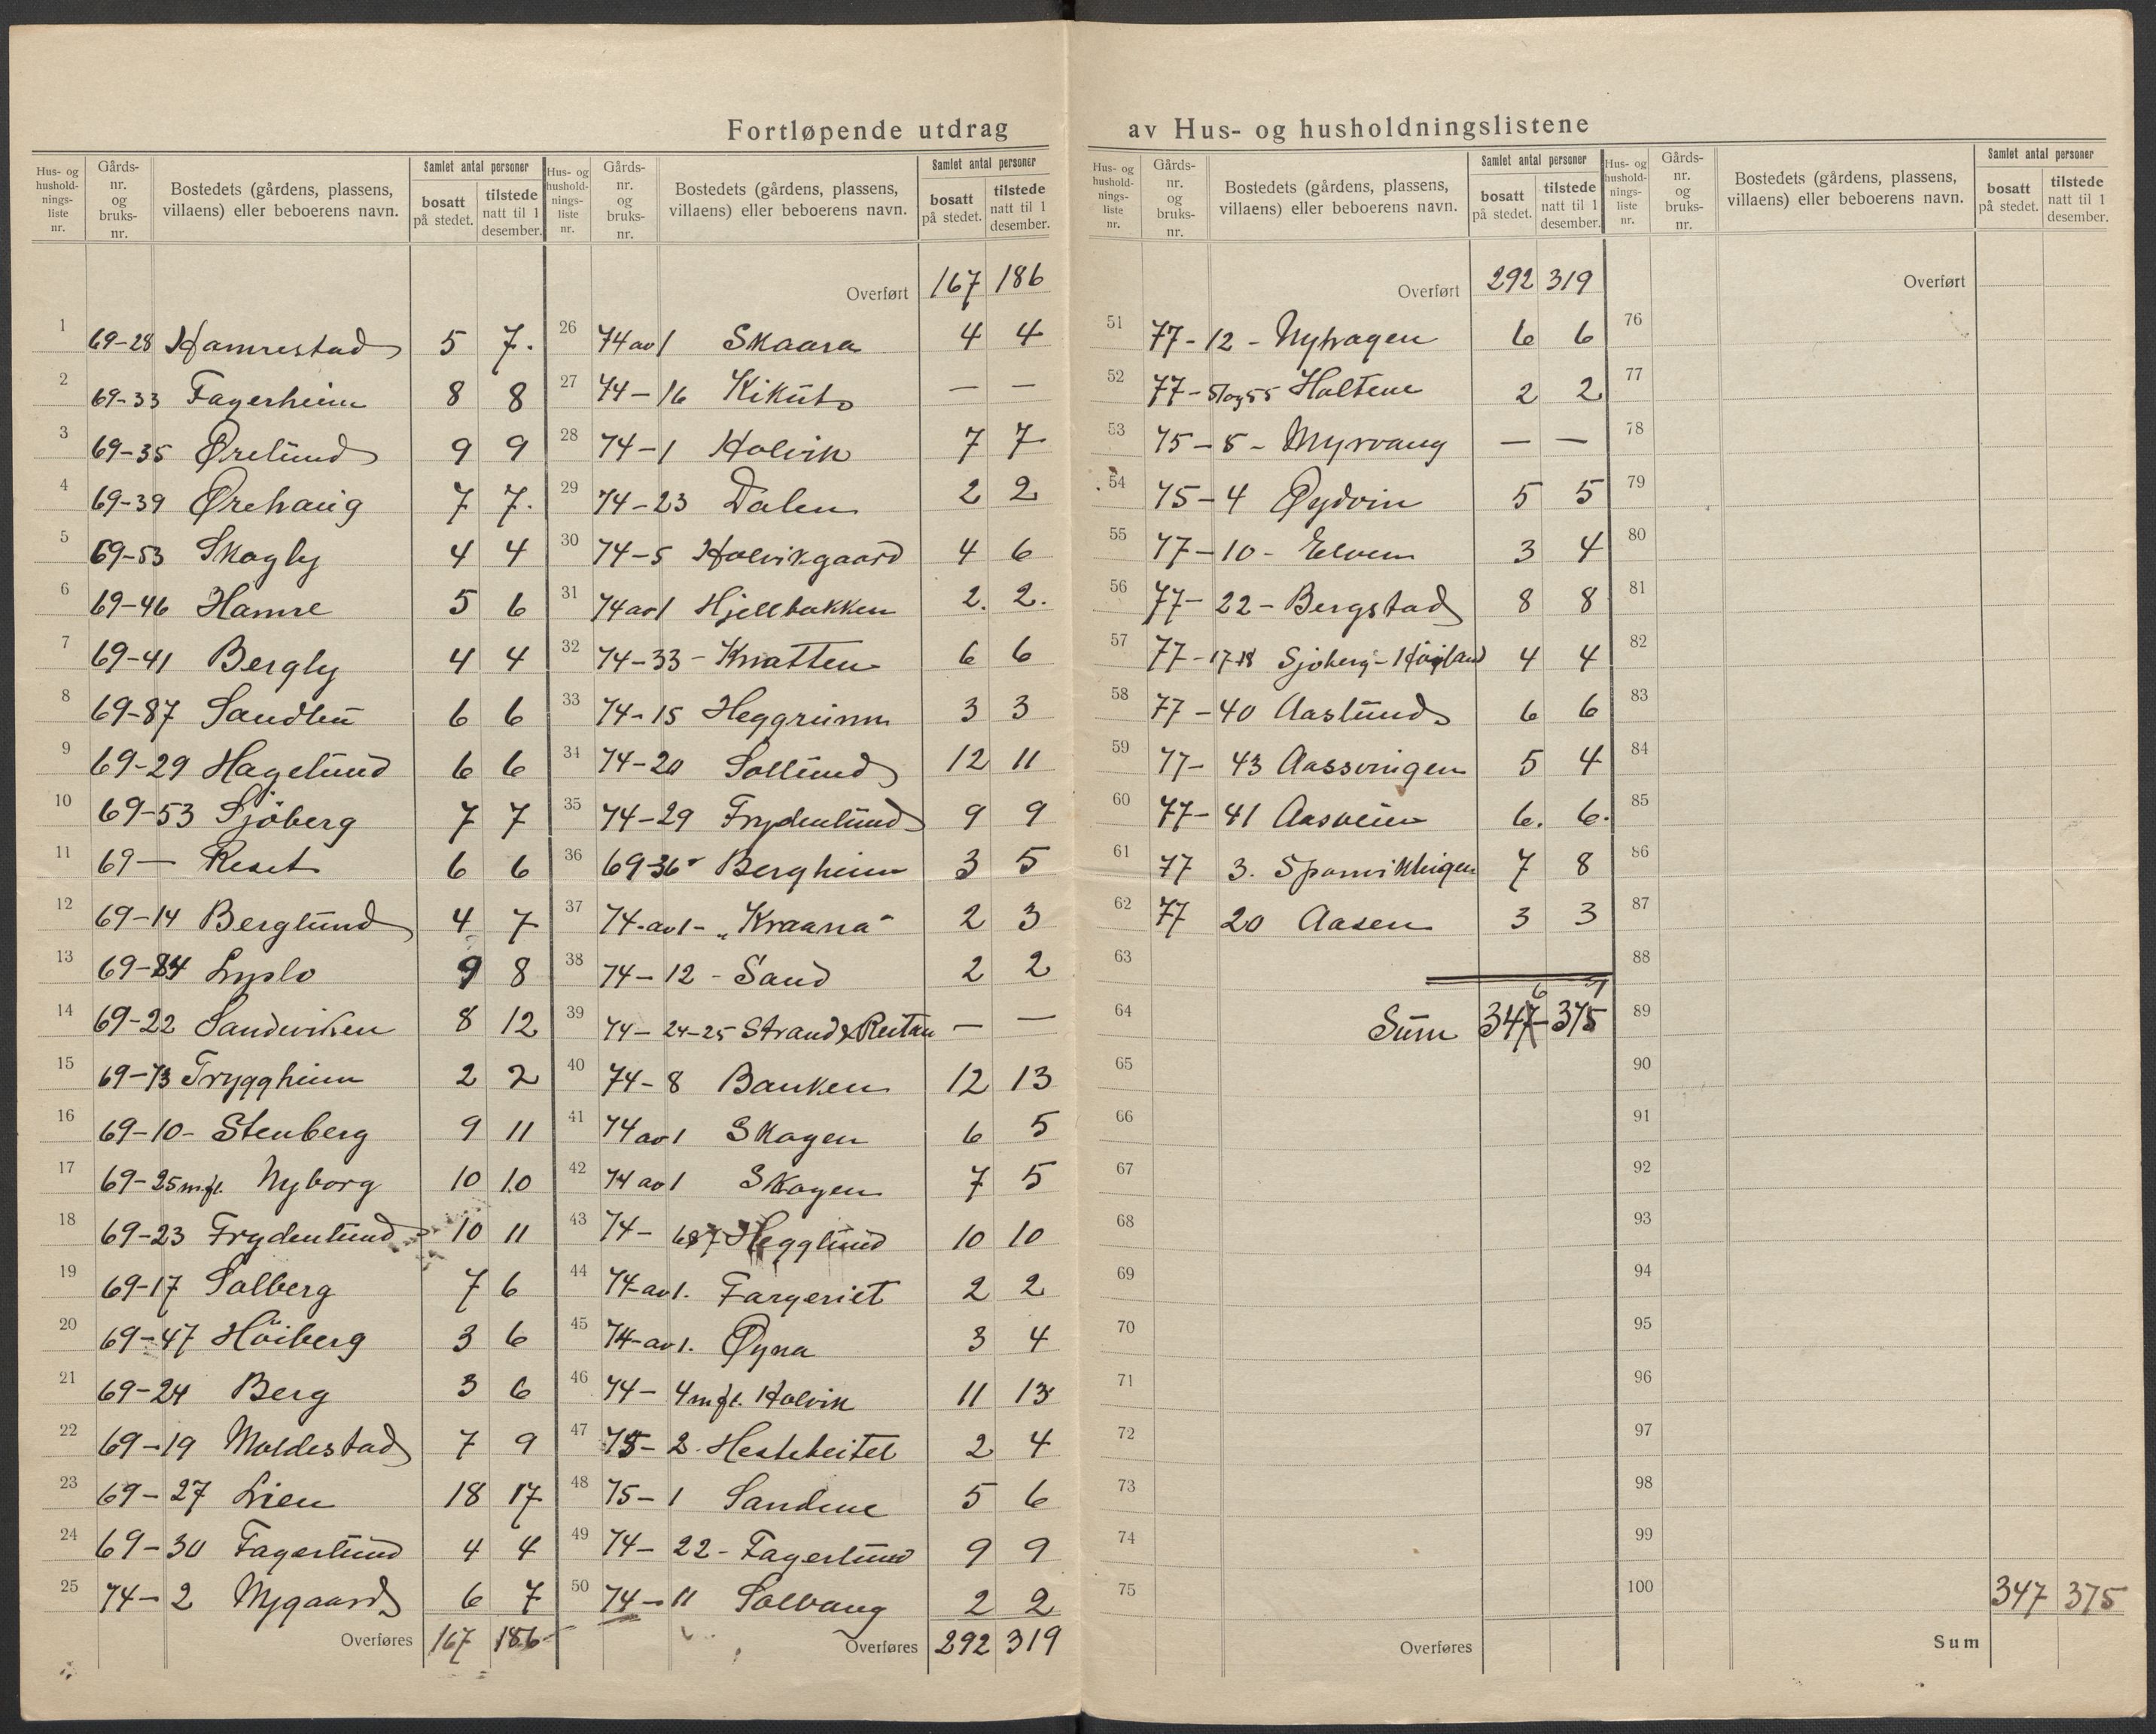 Fortløpende utdrag av Hus- og husholdningslistene
Hus- og hushold- nings- liste nr. Gårds- nr. og bruks- nr. Bostedets (gårdens, plassens, villaens) eller beboerens navn. Samlet antal personer bosatt på stedet. tilstede natt til 1 desember.
1 69-28 Hamrestad 5 7.
2 69-33 Fagerheim 8 8
3 69-35 Ørelund 9 9
4 69-39 Ørehaug 7 7.
5 69-53 Skogly 4 4
6 69-46 Hamre 5 6
7 69-41 Bergly 4 4
8 69-87 Sandbu 6 6
9 69-29 Hagelund 6 6
10 69-53 Sjöberg 7 7
11 69— Reset 6 6
12 69-14 Berglund 4 7
13 69-84 Lyslo 9 8
14 69-22 Sandviken 8 12
15 69-73 Tryggheim 2 2
16 69-10- Stenberg 9 11
17 69-25 m.fl. Nyborg 10 10
18 69-23 Frydenlund 10 11
19 69-17 Solberg 7 6
20 69-47 Höiberg 3 6
21 69-24 Berg 3 6
22 69-19 Moldestad 7 9
23 69-27 Lien 18 17
24 69-30 Fagerlund 4 4
25 74-2 Nygaard 6 7
Overføres 167 186
Hus- og hushold- nings- liste nr. Gårds- nr. og bruks- nr. Bostedets (gårdens, plassens, villaens) eller beboerens navn. Samlet antal personer bosatt på stedet. tilstede natt til 1 desember.
Overført 167 186
26 74 av 1 Skaara 4 4
27 74-16 Kikuto — —
28 74-1 Holvik 7 7
29 74-23 Dalen 2 2
30 74-5 Holvikgaard 4 6
31 74 av 1 Hjellbakken 2. 2.
32 74-33 - Knatten 6 6
33 74-15 Heggrunn 3 3
34 74-20 Sollund 12 11
35 74-29 Frydenlund 9 9
36 69-36 Bergheim 3 5
37 74-av 1- "Kraana" 2 3
38 74-12 - Sand 2 2
39 74-24-25 Strand & — —
40 74-8 Banken 12 13
41 74 av 1 Skogen 6 5
42 74 av 1 Skogen 7 5
43 74- Hegglund 10 10
44 74-av 1. Fargeriet 2 2
45 74-av 1. Øyra 3 4
46 74-4 m.fl. Holvik 11 13
47 75-2. Hestebeitet 2 4
48 75-1 Sandene 5 6
49 74-22- Fagerlund 9 9
50 74-11 Solvang 2 2
Overføres 292 319
Hus- og hushold- nings- liste nr. Gårds- nr. og bruks- nr. Bostedets (gårdens, plassens, villaens) eller beboerens navn. Samlet antal personer bosatt på stedet. tilstede natt til 1 desember.
Overført 292 319
51 77-12 - Nyhagen 6 6
52 77-51 og 55 Holtene 2 2
53 75-8 - Myrvang — —
54 75-4 Øydvin 5 5
55 77-10- Elven 3 4
56 77-22- Bergstad 8 8
57 77-17-18 Sjöberg-Höyland 4 4
58 77-40 Aaslund 6 6
59 77-43 Aassvingen 5 4
60 77-41 Aasheim 6. 6.
61 77 3. 7 8
62 77 20 Aasen 3 3
63
64 Sum 347-375
65
66
67
68
69
70
71
72
73
74
75
Overføres
Hus- og hushold- nings- liste nr. Gårds- nr. og bruks- nr. Bostedets (gårdens, plassens, villaens) eller beboerens navn. Samlet antal personer bosatt på stedet. tilstede natt til 1 desember.
Overført
76
77
78
79
80
81
82
83
84
85
86
87
88
89
90
91
92
93
94
95
96
97
98
99
100 347 375
Sum